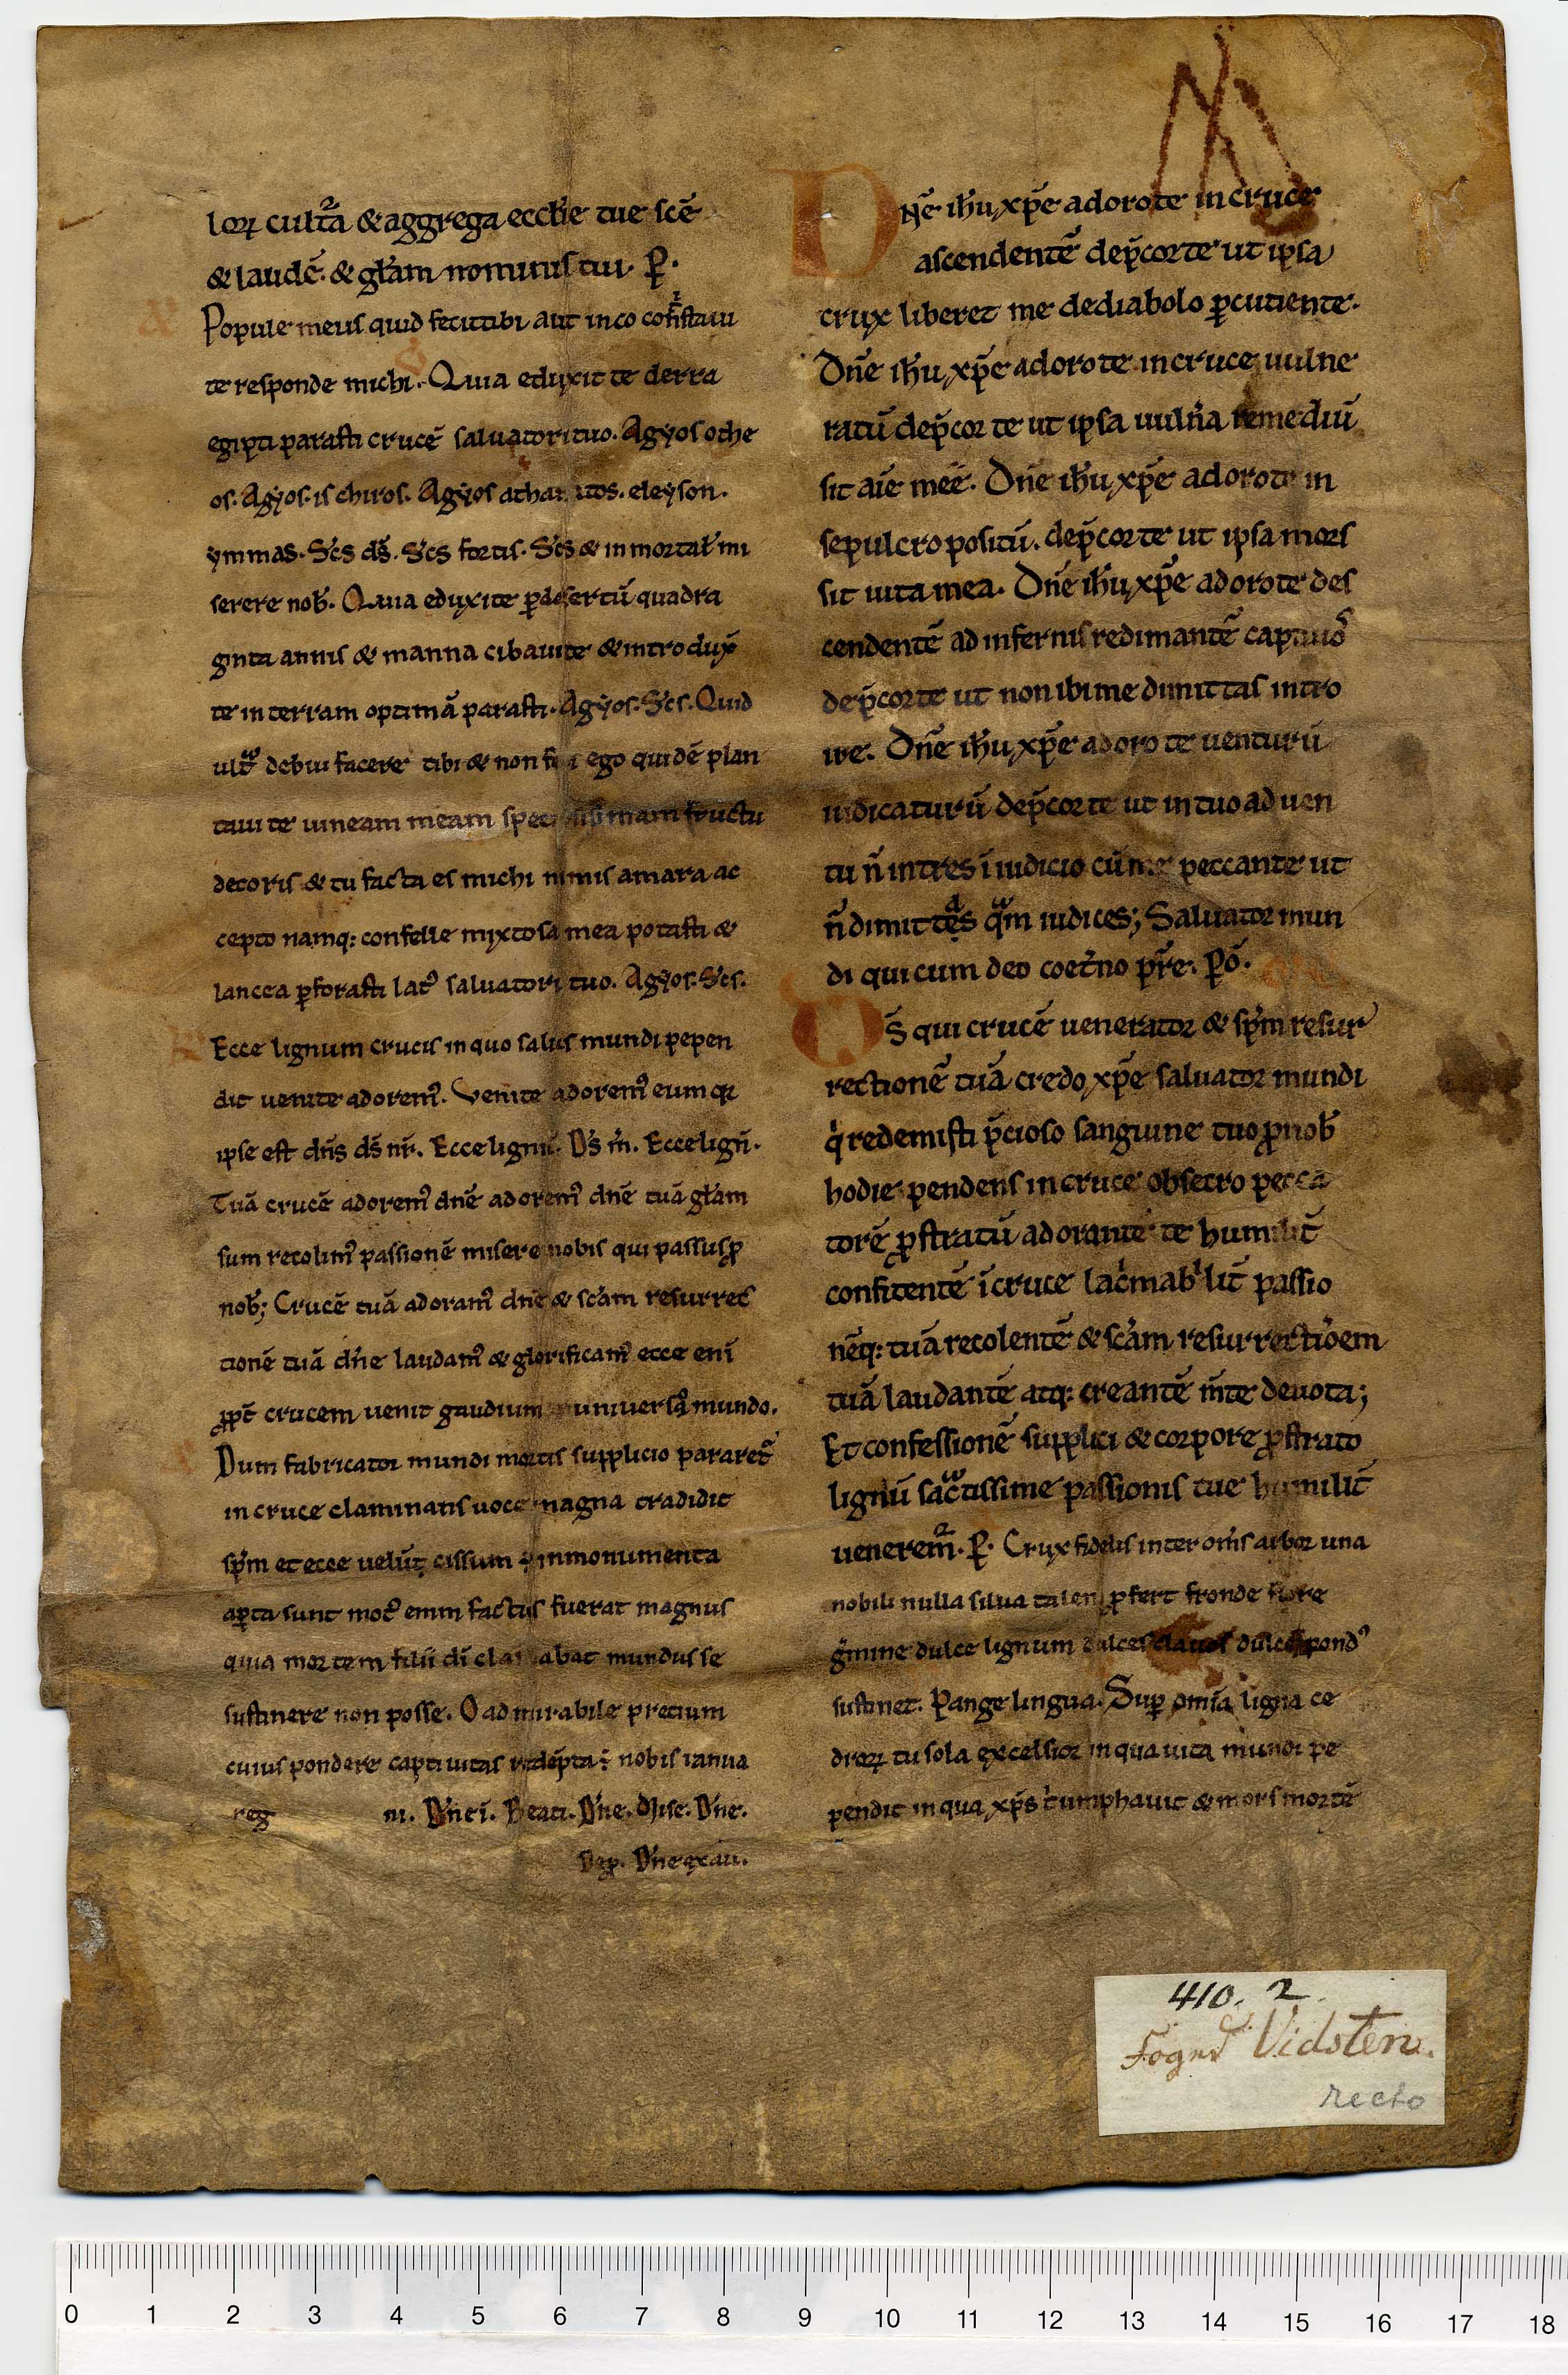 lorꝝ cultᷓa & aggrega eccłie tue scē
& laudē. & głam nominis tui. ꝑ.
Popule meus quid feci tibi aut in co cōfristaui
te responde michi. Quia eduxit te de rra
egipti parasti crucē saluatori tuo. Agẏos othe
os. Agẏos is chiros. Agẏos atha tos. eleẏson.
ẏmmas. Scs ds. Scs fortis. Scs & inmortał mi
serere nob. Quia eduxi te ꝑ desertū quadra
ginta annis & manna cibaui te & introdux
te in terram optimā parasti. Agẏos. Scs. Quid
ultᷓ debui facere tibi & non fe i ego quidē plan
taui te uineam meam spec issimam fructu
decoris & tu facta es michi nimis amara ac
cepto namq: confelle mixto sa mea potasti &
lancea ꝑforasti lat᾽ saluatori tuo. Agẏos. Scs.
Ecce lignum crucis in quo salus mundi pepen
dit uenite adorem᾽. Venite adorem᾽ eum qi
ipse est dns ds nr. Ecce lignū. Ds m. Ecce lign.
Tuā crucē adorem᾽ dnē adorem᾽ dnē tuā głam
sum recolim᾽ passionē misere nobis qui passus ꝓ
nob; Crucē tuā adoram᾽ dnē & scam resurrec
tionē tuā dne laudam᾽ & glorificam᾽ ecce eni
ꝓpt crucem uenit gaudium uniuerso mundo.
Dum fabricator mundi mortis supplicio pararet᷑
in cruce clammans uoce magna tradidit
spm et ecce uelut cissum ÷ inmonumenta
aꝑta sunt mot᾽ enim factus fuerat magnus
quia mortem filii di cla abat mundus se
sustinere non posse. O admirabile precium
cuius pondere captiuitas redēpta ÷ nobis ianua
reg ni. Dne i. Beati. Dne. Mise. Dne.
Dep. Dne exau.
Dnē ihu xpe adoro te in cruce
ascendentē dep̄cor te ut ipsa
crux liberet me de diabolo ꝑcutiente.
Dnē ihu xpe adoro te in cruce uulne
ratū dep̄cor te ut ipsa uulnᷓa remediū
sit aīe meē. Dnē ihu xpe adoro te in
sepulcro positū. dep̄cor te ut ipsa mors
sit uita mea. Dnē ihu xpe adoro te des
cendentē ad infernis redimantē captiuos
dep̄cor te ut non ibi me dimittas intro
ire. Dnē ihu xpe adoro te uenturū
iudicaturū dep̄cor te ut in tuo aduen
tu n̄ intres ī iudicio cū me peccante ut
n̄ dimittes qᷓm iudices; Saluator mun
di qui cum deo coetno pre. Pō.
Os qui crucē uenerator & spm resur
rectionē tuā credo xpe saluator mundi
qi redemisti p̄cioso sanguine tuo ꝓ nob
hodie pendens in cruce obsecro pecca
torē ꝓstratū adorante te humilit̄
confitentē ī cruce lac̄mabilit̄ passio
nēq: tuā recolentē & scam resurrectioem
tuā laudantē atq: creantē m̄te deuota;
Et confessionē supplici & corpore ꝓstrato
lignū sacᷓtissime passionis tue humilit̄
uenerem᷑. ꝑ. Crux fidelis inter om̄s arbor una
nobili nulla silua talem ꝓfert fronde flore
gmine dulce lignum dulces clauos dulce pond᾽
sustinet. Pange lingua. Suꝑ omīa ligna ce
drorꝝ tu sola excelsior in qua uita mundi pe
pendit in qua xps tumphauit & mors mortē
410. 2.
Fogd Vidsten.
recto
0 1 2 3 4 5 6 7 8 9 10 11 12 13 14 15 16 17 18